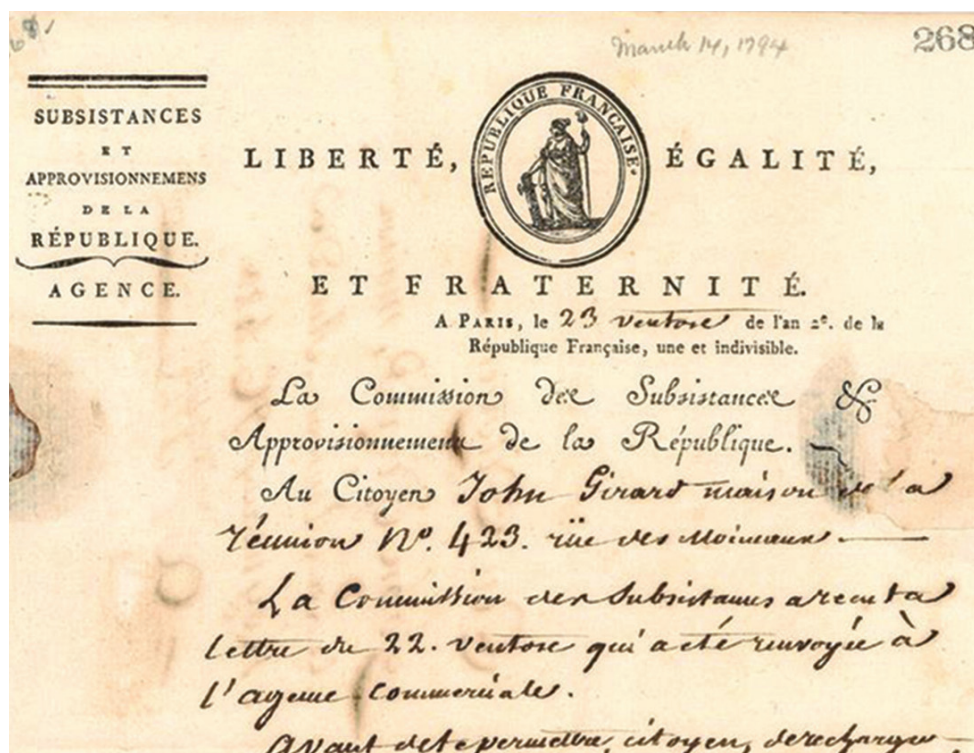 March 14, 1794
268
SUBSISTANCES
ET
APPROVISIONNEMENS
DE LA
RÉPUBLIQUE.
AGENCE.
LIBERTÉ, ÉGALITÉ,
REPUBLIQUE FRANÇAISE.
ET FRATERNITÉ.
A PARIS, le 23 ventose de l'an 2e. de la
République Française, une et indivisible.
La Commission des Subsistances &
Approvisionnemens de la République.
Au Citoyen John Girard maison de la
réunion No. 423. rüe des Moineaux
La Commission des Subsistances a recu ta
lettre du 22. ventose qui a été renvoyée à
l'agence Commerciale.
Avant de te permettre, citoyen, de recharger